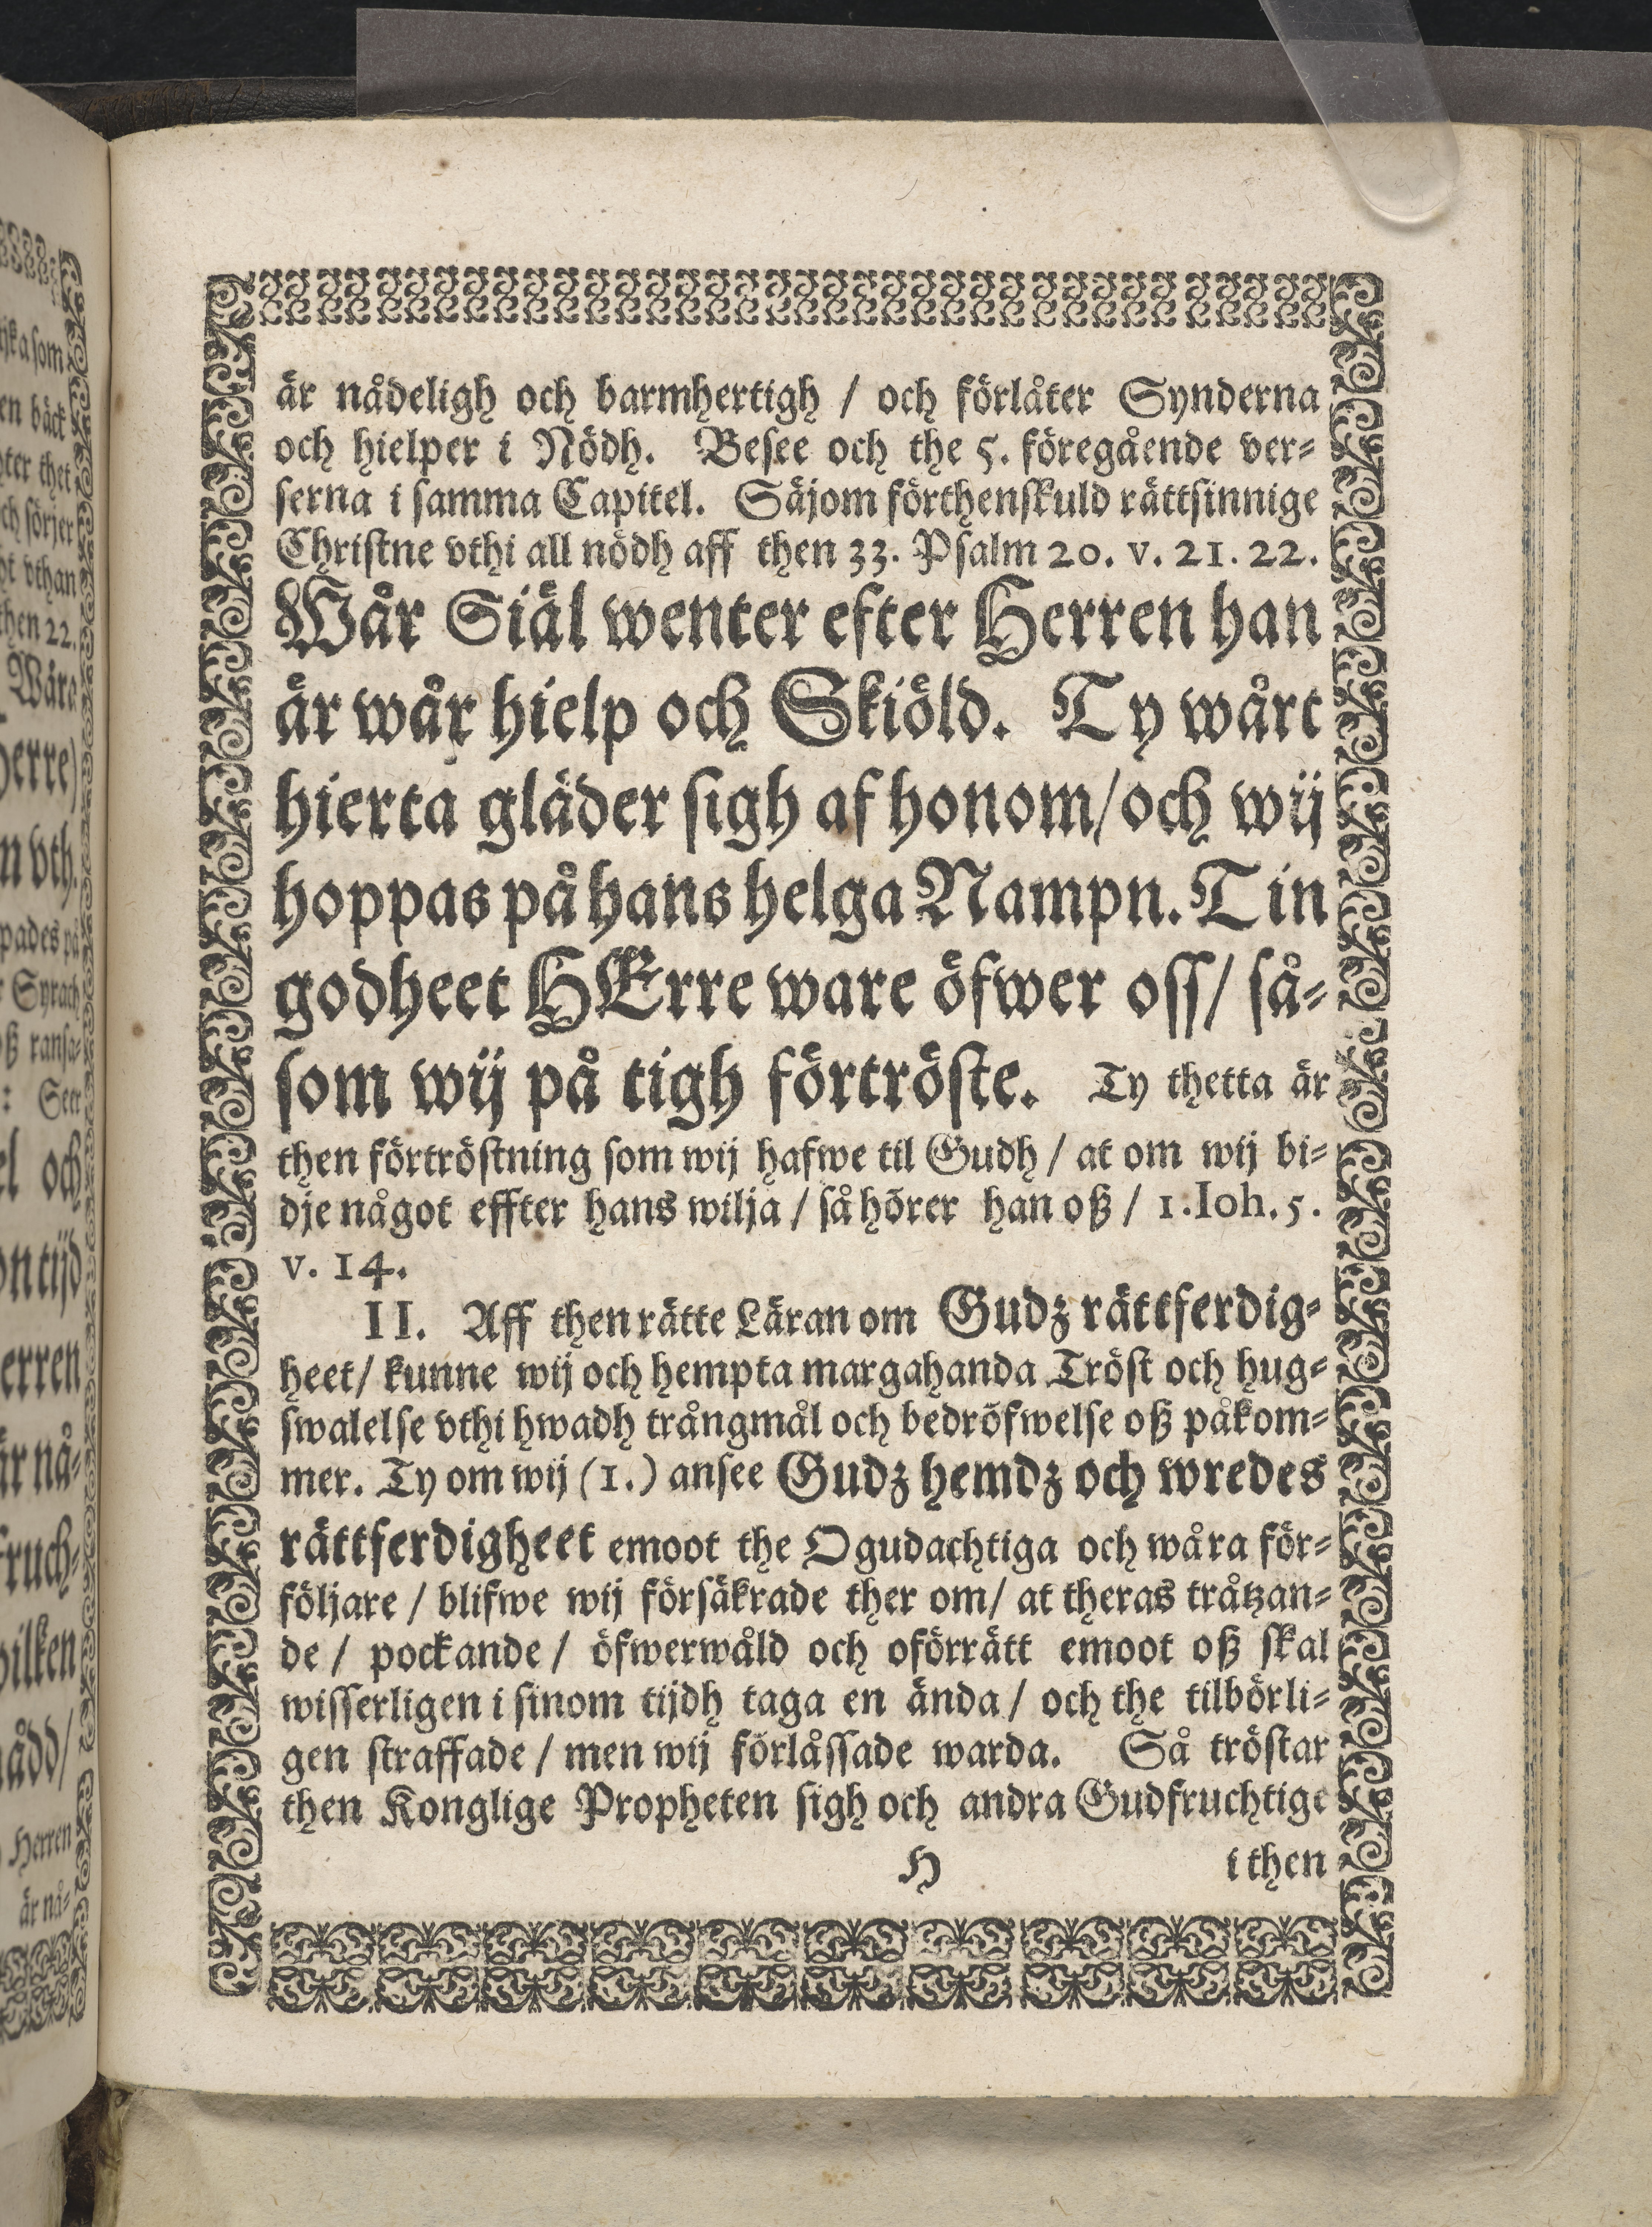 är nådeligh och barmhertigh / och förlåter Synderna
och hielper i Nödh. Besee och the 5. föregående ver-
serna i samma Capitel. Säjom förthenskuld rättsinnige
Christne vthi all nödh aff then 33. Psalm 20. v. 21. 22.
Wår Siäl wenter efter Herren han
är wår hielp och Skiöld. Ty wårt
hierta gläder sigh af honom/och wij
hoppas på hans helga Nampn. Tin
godheet HErre ware öfwer oss/ så-
som wij på tigh förtröste. Ty thetta är
then förtröstning som wij hafwe til Gudh / at om wij bi-
dje något effter hans wilja / så hörer han oß / 1. Ioh. 5.
v. 14.
II. Aff then rätte Läran om Gudz rättferdig-
heet/ kunne wij och hempta margahanda Tröst och hug-
swalelse vthi hwadh trångmål och bedröfwelse oß påkom-
mer. Ty om wij (1.) ansee Gudz hemdz och wredes
rättferdigheet emoot the Ogudachtiga och wåra för-
följare / blifwe wij försäkrade ther om/ at theras tråtzan-
de / pockande / öfwerwåld och oförrätt emoot oß skal
wisserligen i sinom tijdh taga en ända / och the tilbörli-
gen straffade / men wij förlåssade warda. Så tröstar
then Konglige Propheten sigh och andra Gudfruchtige
H i then